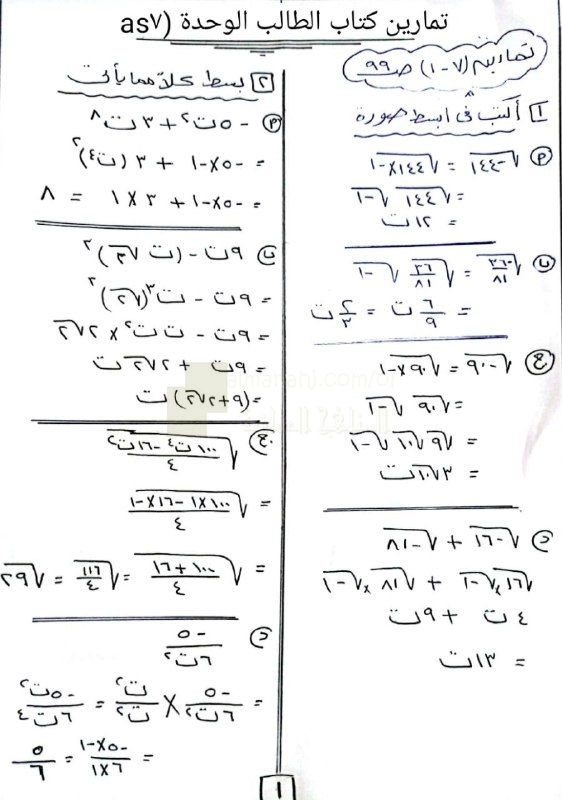 تمارين كتاب الطالب الوحدة (as٧
تمارين (٧-١) ص ٩٩
١ أكتب في ابسط صورة
٢) √-١٤٤ = √١٤٤×-١
= √١٤٤ √-١
= ١٢ت
ب) √-٣٦/٨١ = √٣٦/٨١ √-١
= ٦/٩ ت = ٢/٣ ت
ج) √-٩٠ = √٩٠×-١
= √٩٠ √-١
= √٩ √١٠ √-١
= ٣√١٠ت
د) √-١٦ + √-٨١
√١٦×√-١ + √٨١×√-١
٤ت + ٩ت
= ١٣ت
٢ بسط كلاً مما يأتي
٢) -٥ت٢ + ٣ت٨
= -٥×-١ + ٣(ت٤)٢
= -٥×-١ + ٣×١ = ٨
ب) ٩ت - (ت√٢)٢
= ٩ت - ت٣(√٢)٢
= ٩ت - ت ت٢ × ٢√٢
= ٩ت + ٢√٢ت
= (٩+٢√٢)ت
almanahj.com/om
المناهج العمانية
ج) √١٠٠ت٤-١٦ت٢/٤
= √١٠٠×١-١٦×-١/٤
= √١٠٠+١٦/٤ = √١١٦/٤ = √٢٩
د) -٥/٦ت٢
= -٥/٦ت٢ × ت٢/ت٢ = -٥ت٢/٦ت٤
= -٥×-١/٦×١ = ٥/٦
١